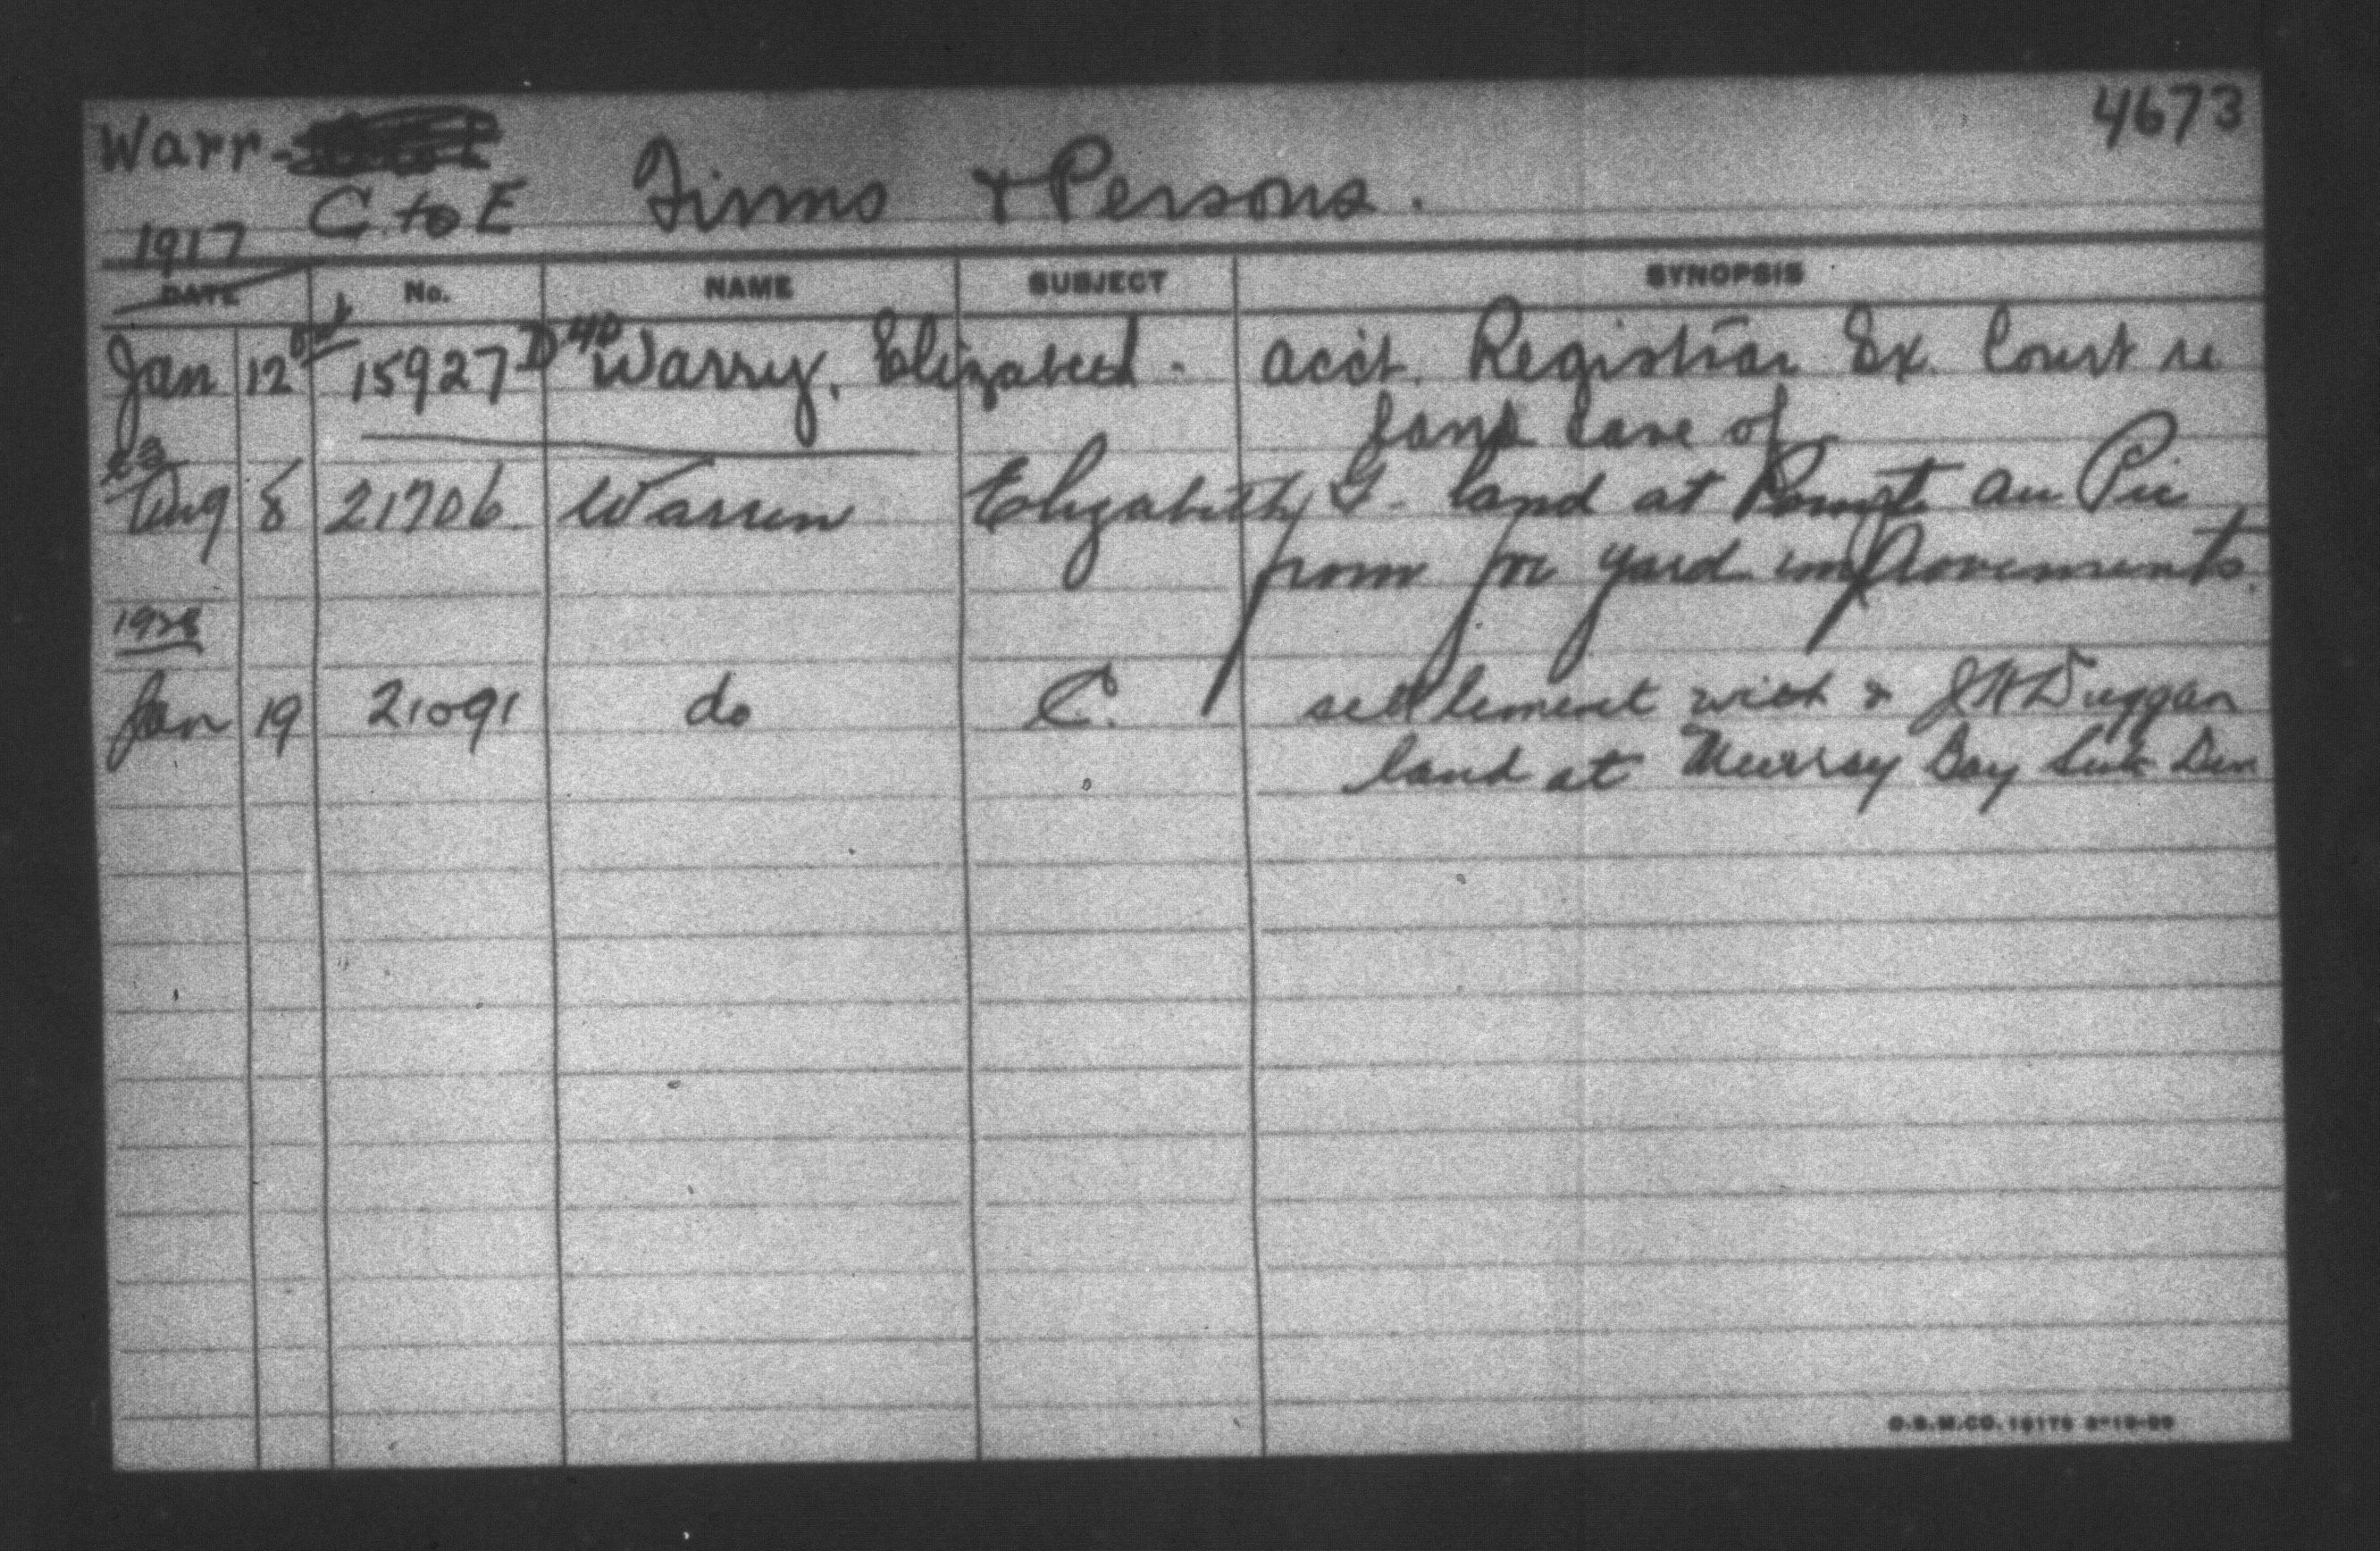 Warr- 4673
C to E Firms & Persons.
1917
DATE No. NAME SUBJECT SYNOPSIS
Jan 12 15927 D 40 Warry, Elizabeth. acct. Registrar Ex. Court re
land case of
23
Aug 8 21706 Warren Elizabeth G. land at Pointe au Pic
from for yard improvements.
1928
Jan 19 21091 do C. settlement with & J H Duggan
land at Murray Bay Sub Div